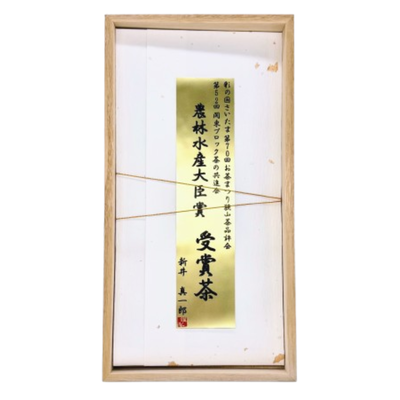 彩の国さいたま第70回お茶まつり狭山茶品評会
第52回関東ブロック茶の共進会
農林水産大臣賞 受賞茶
新井 真一郎